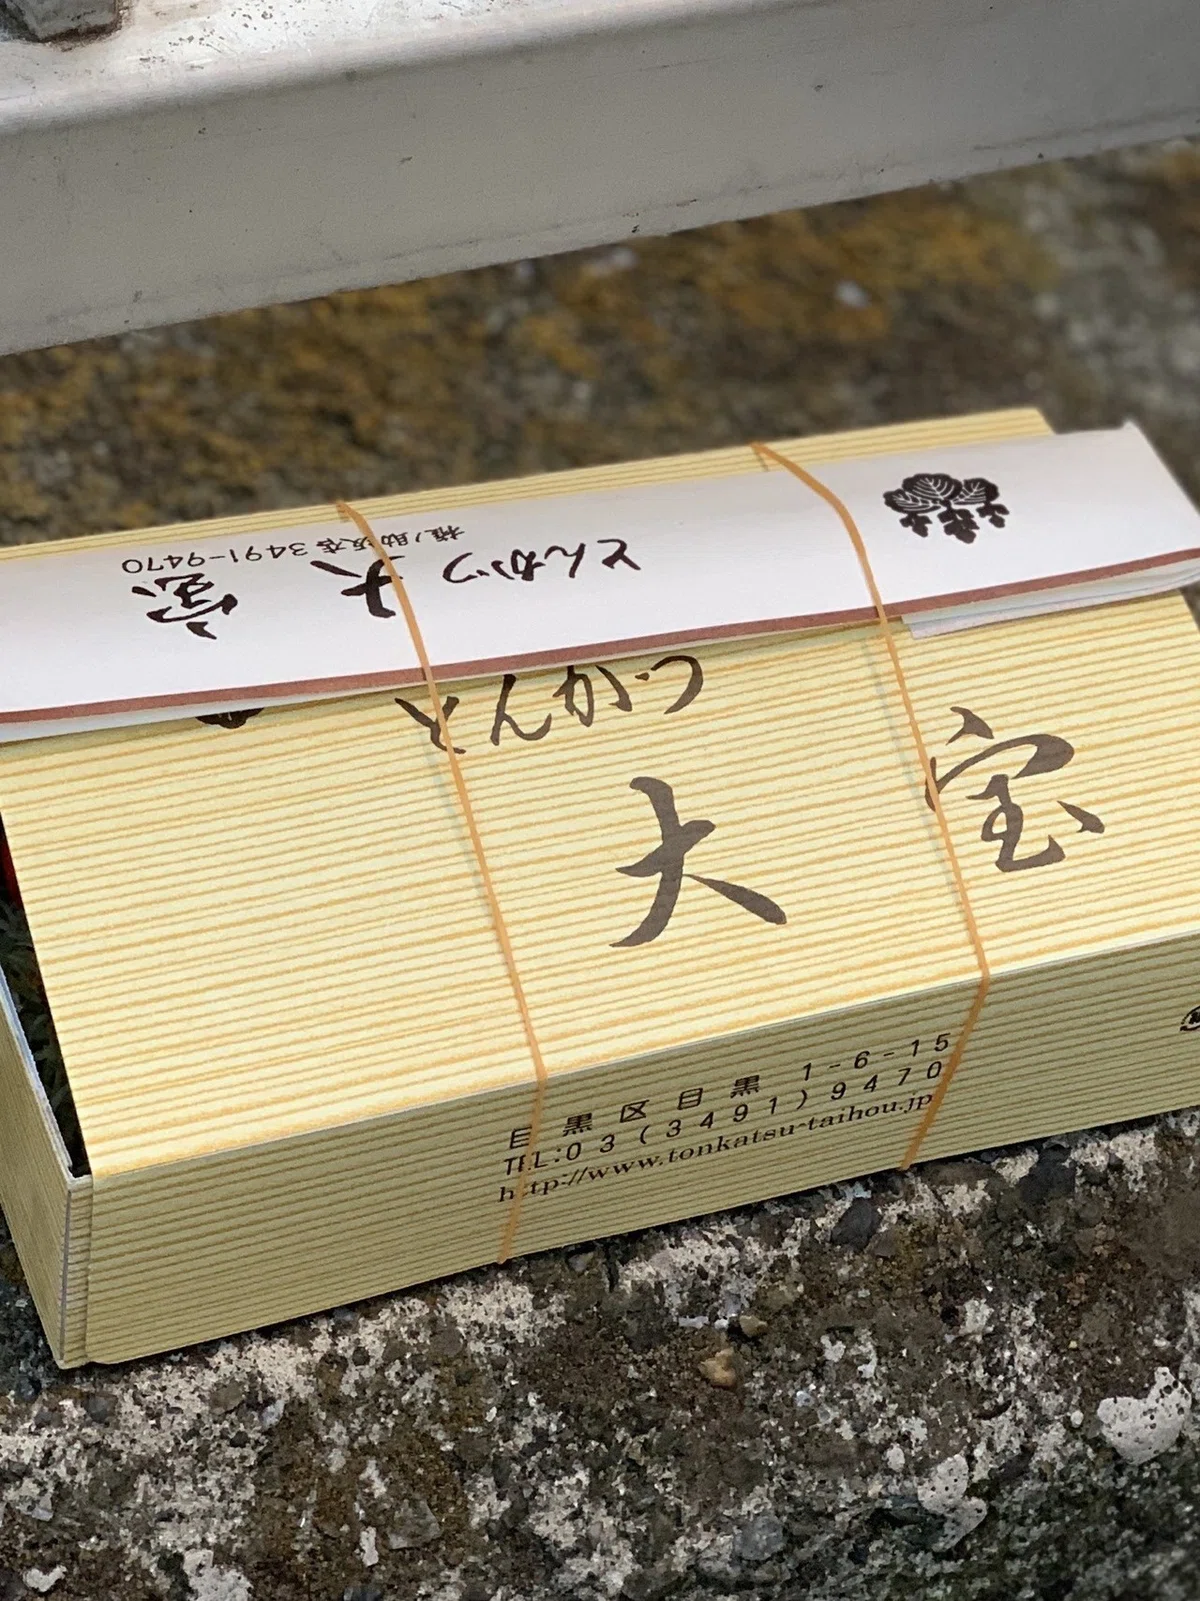 権ノ助坂店 3491-9470
とんかつ 大宝
とんかつ
大宝
目黒区目黒 1-6-15
TEL:03(3491)9470
http://www.tonkatsu-taihou.jp